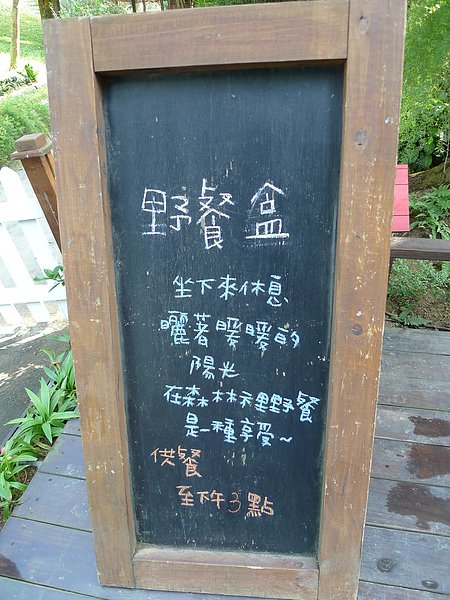 野餐盒
坐下來休息
曬著暖暖的
陽光
在森林裡野餐
是一種享受~
供餐
至下午3點